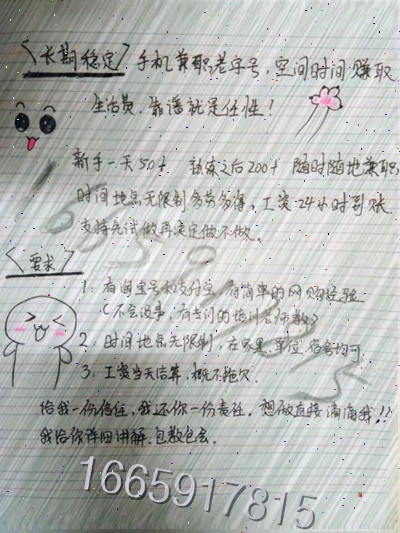 <长期稳定> 手机兼职老字号，空闲时间赚取
生活费，靠谱就是任性！
新手一天50+ 熟练之后200+ 随时随地兼职
时间地点无限制多劳多得，工资24小时到账
支持先试做再决定做不做。
<要求>
1、有淘宝号和支付宝，有简单的网购经验
(不会没事，有专门的培训老师教)
2、时间地点无限制，在家里、单位、宿舍均可
3、工资当天结算，概不拖欠。
给我一份信任，我还你一份责任。想做直接滴滴我!!
我给你详细讲解.包教包会.
1665917815